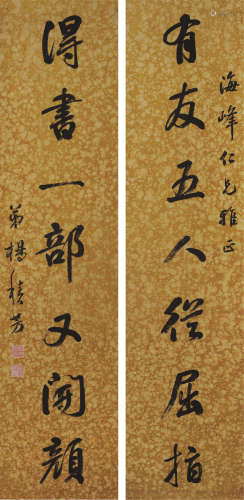 海峰仁兄雅正
有友五人從屈指
得書一部又開顏
弟楊積芳